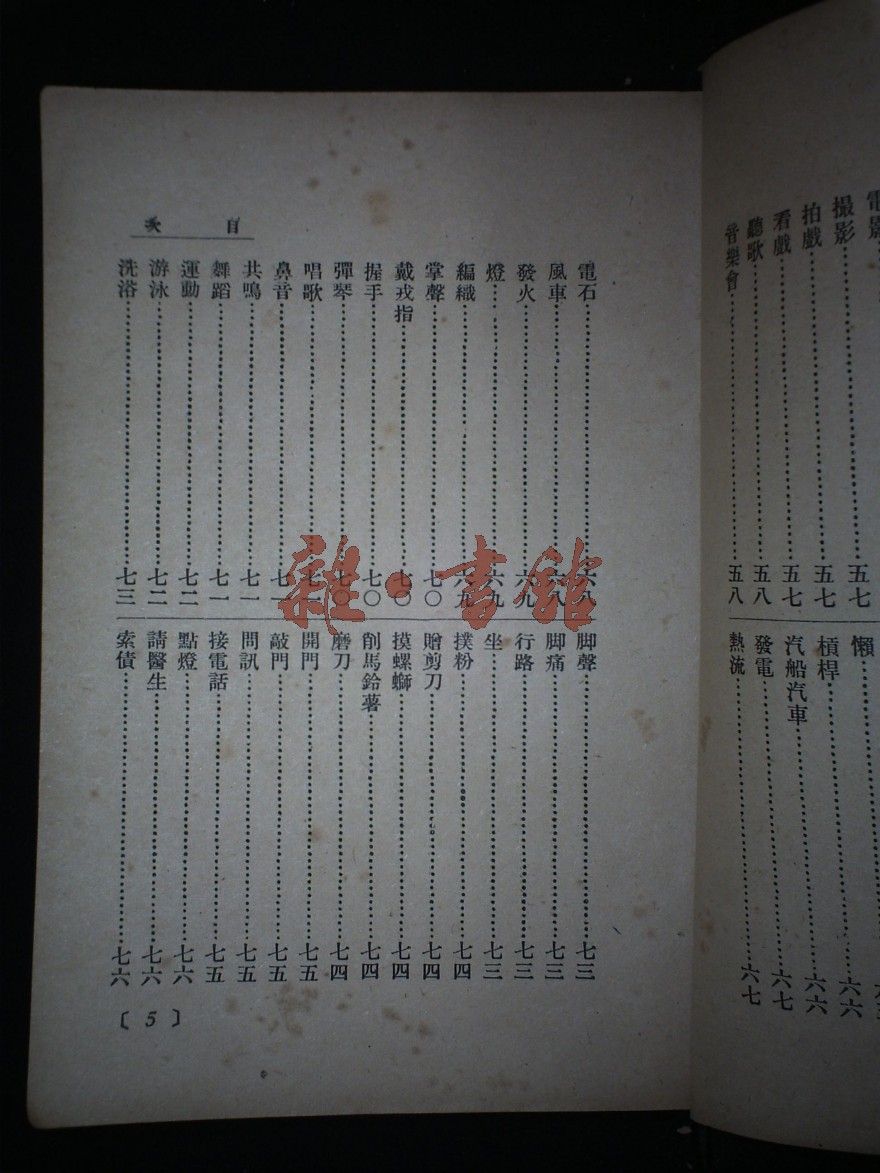 電影
撮影……五七
拍戲……五七
看戲……五七
聽歌……五八
音樂會……五八
懶……
槓桿……六六
汽船汽車……六六
發電……六七
熱流……六七
目次
電石……六八
風車……六八
發火……六九
燈……六九
編織……六九
掌聲……七〇
戴戎指……七〇
握手……七〇
彈琴……七〇
唱歌……七一
鼻音……七一
共鳴……七一
舞蹈……七一
運動……七二
游泳……七二
洗浴……七三
脚聲……七三
脚痛……七三
行路……七三
坐……七三
撲粉……七四
贈剪刀……七四
摸螺螄……七四
削馬鈴薯……七四
磨刀……七四
開門……七五
敲門……七五
問訊……七五
接電話……七五
點燈……七六
請醫生……七六
索債……七六
〔5〕
雜·書館